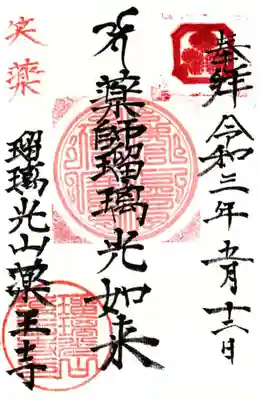 奉拝 令和三年五月十六日
薬師瑠璃光如来
瑠璃光山薬王寺
笑薬